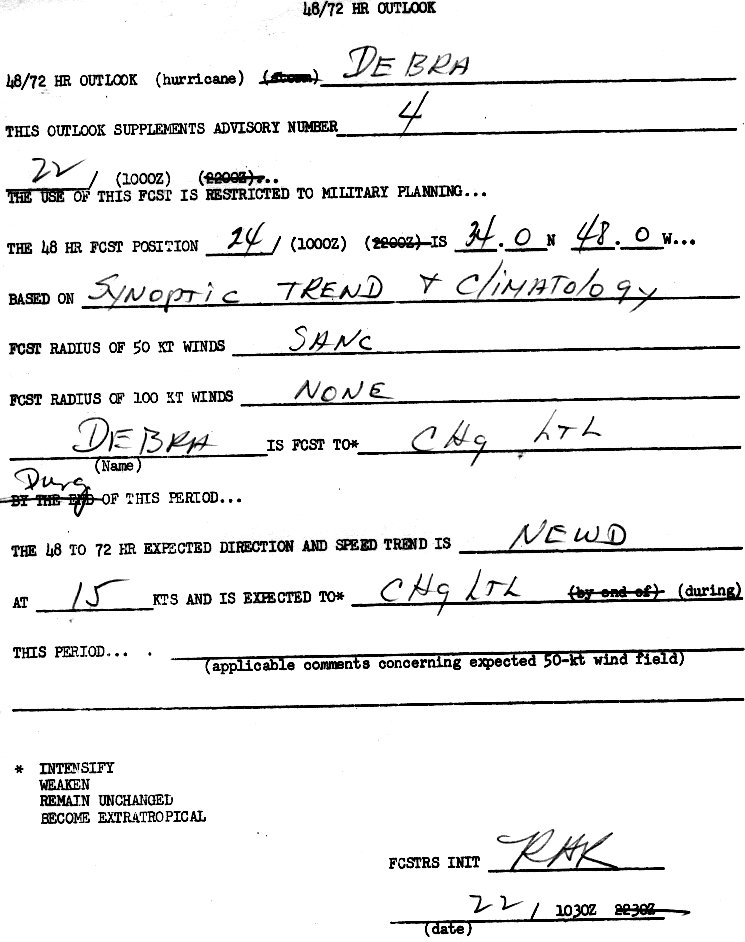 48/72 HR OUTLOOK
48/72 HR OUTLOOK (hurricane) (storm) DEBRA
THIS OUTLOOK SUPPLEMENTS ADVISORY NUMBER 4
22 / (1000Z) (2200Z)...
THE USE OF THIS FCST IS RESTRICTED TO MILITARY PLANNING...
THE 48 HR FCST POSITION 24 / (1000Z) (2200Z) IS 34.0 N 48.0 W...
BASED ON SYNOPTIC TREND & CLIMATOLOGY
FCST RADIUS OF 50 KT WINDS SANC
FCST RADIUS OF 100 KT WINDS NONE
DEBRA IS FCST TO* CHG LTL
(Name)
Durg
BY THE END OF THIS PERIOD...
THE 48 TO 72 HR EXPECTED DIRECTION AND SPEED TREND IS NEWD
AT 15 KTS AND IS EXPECTED TO* CHG LTL (by end of) (during)
THIS PERIOD... .
(applicable comments concerning expected 50-kt wind field)
* INTENSIFY
WEAKEN
REMAIN UNCHANGED
BECOME EXTRATROPICAL
FCSTRS INIT RAK
22 / 1030Z 2230Z
(date)